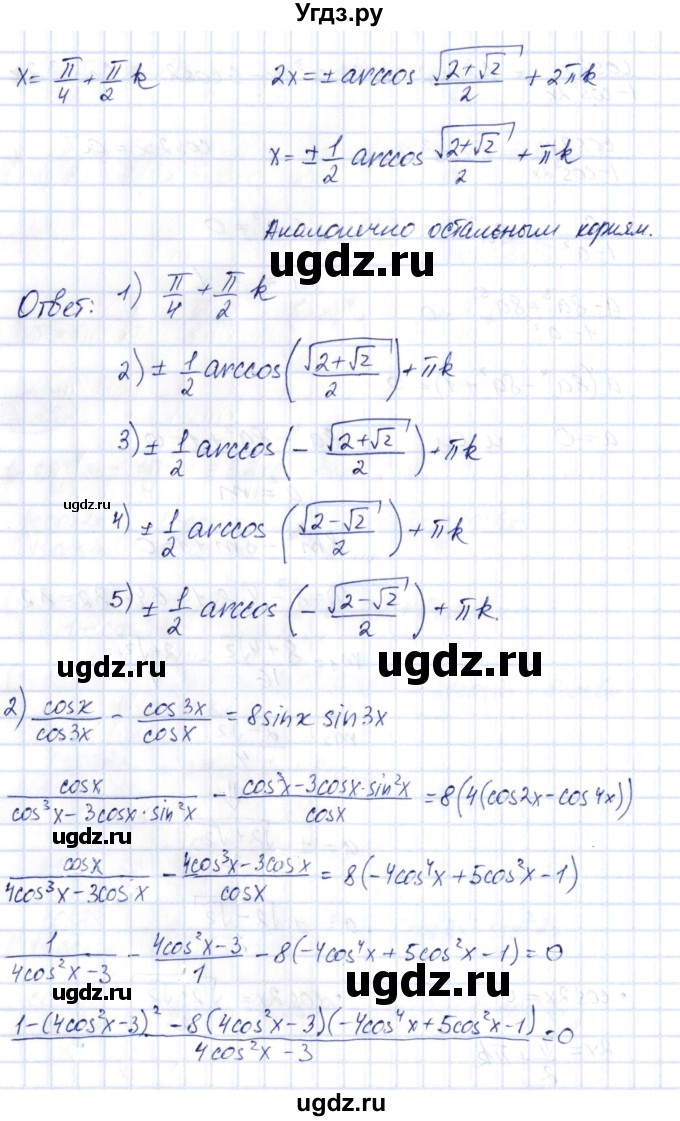 Угдз.ру
x = π/4 + π/2 k
2x = ± arccos √(2+√2)/2 + 2πk
x = ± 1/2 arccos √(2+√2)/2 + πk
Аналогично остальным корням.
ugdz.ru
Ответ: 1) π/4 + π/2 k
2) ± 1/2 arccos(√(2+√2)/2) + πk
3) ± 1/2 arccos(-√(2+√2)/2) + πk
ugdz.ru
4) ± 1/2 arccos(√(2-√2)/2) + πk
5) ± 1/2 arccos(-√(2-√2)/2) + πk.
ugdz.ru
ugdz.ru
2) cosx/cos3x - cos3x/cosx = 8sinx sin3x
cosx/(cos³x - 3cosx·sin²x) - (cos³x - 3cosx·sin²x)/cosx = 8(4(cos2x - cos4x))
ugdz.ru
cosx/(4cos³x - 3cosx) - (4cos³x - 3cosx)/cosx = 8(-4cos⁴x + 5cos²x - 1)
1/(4cos²x - 3) - (4cos²x - 3)/1 - 8(-4cos⁴x + 5cos²x - 1) = 0
ugdz.ru
ugdz.ru
(1 - (4cos²x - 3)² - 8(4cos²x - 3)(-4cos⁴x + 5cos²x - 1))/(4cos²x - 3) = 0
ugdz.ru